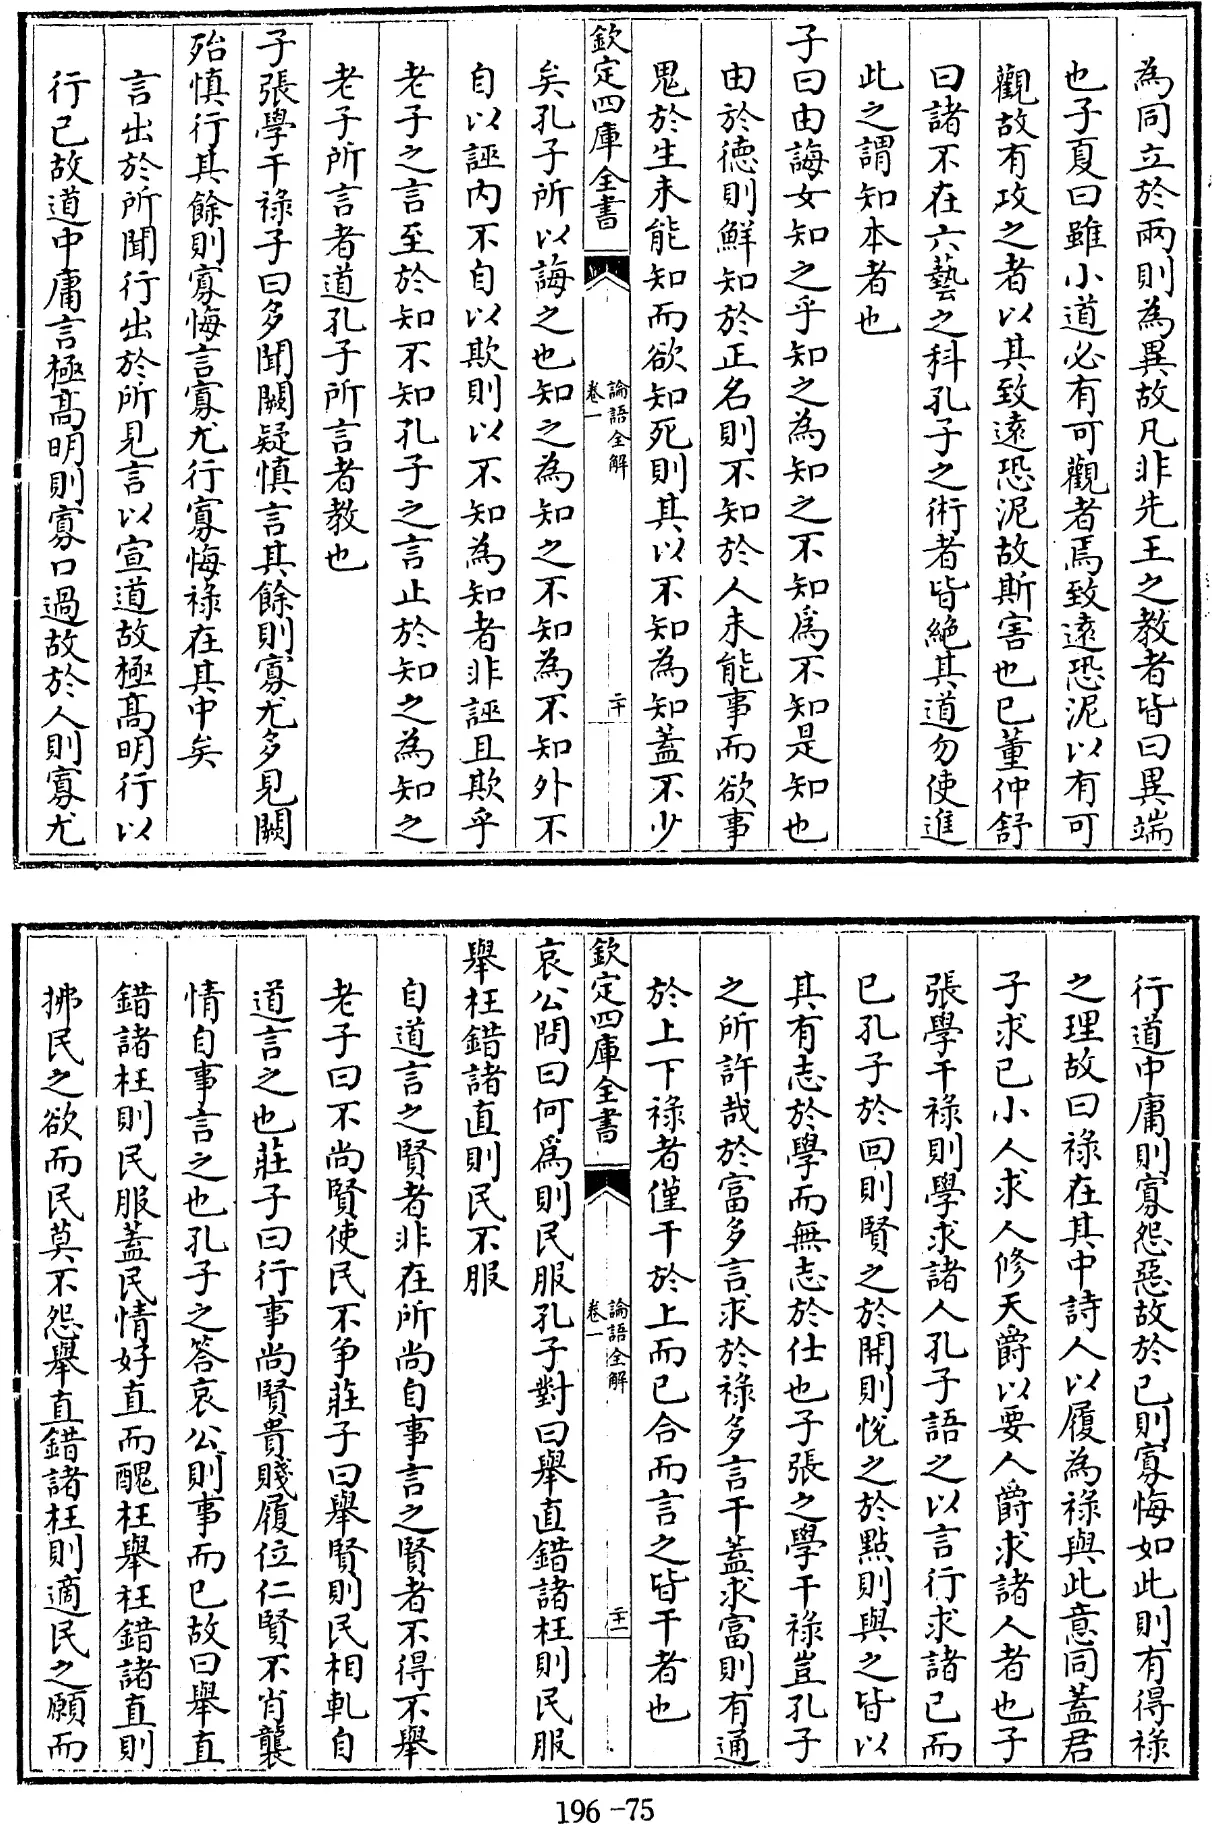 為同立於兩則為異故凡非先王之教者皆曰異端
也子夏曰雖小道必有可觀者焉致遠恐泥以有可
觀故有攻之者以其致遠恐泥故斯害也已董仲舒
曰諸不在六藝之科孔子之術者皆絶其道勿使進
此之謂知本者也
子曰由誨女知之乎知之為知之不知爲不知是知也
由於德則鮮知於正名則不知於人未能事而欲事
鬼於生未能知而欲知死則其以不知為知蓋不少
欽定四庫全書
論語全解
卷一
二十
矣孔子所以誨之也知之為知之不知為不知外不
自以誣內不自以欺則以不知為知者非誣且欺乎
老子之言至於知不知孔子之言止於知之為知之
老子所言者道孔子所言者教也
子張學干祿子曰多聞闕疑慎言其餘則寡尤多見闕
殆慎行其餘則寡悔言寡尤行寡悔祿在其中矣
言出於所聞行出於所見言以宣道故極高明行以
行已故道中庸言極高明則寡口過故於人則寡尤
行道中庸則寡怨惡故於已則寡悔如此則有得祿
之理故曰祿在其中詩人以履為祿與此意同蓋君
子求已小人求人修天爵以要人爵求諸人者也子
張學干祿則學求諸人孔子語之以言行求諸已而
已孔子於回則賢之於開則悅之於點則與之皆以
其有志於學而無志於仕也子張之學干祿豈孔子
之所許哉於富多言求於祿多言干蓋求富則有通
於上下祿者僅干於上而已合而言之皆干者也
欽定四庫全書
論語全解
卷一
二十一
哀公問曰何爲則民服孔子對曰舉直錯諸枉則民服
舉枉錯諸直則民不服
自道言之賢者非在所尚自事言之賢者不得不舉
老子曰不尚賢使民不争莊子曰舉賢則民相軋自
道言之也莊子曰行事尚賢貴賤履位仁賢不肖襲
情自事言之也孔子之答哀公則事而已故曰舉直
錯諸枉則民服蓋民情好直而醜枉舉枉錯諸直則
拂民之欲而民莫不怨舉直錯諸枉則適民之願而
196-75